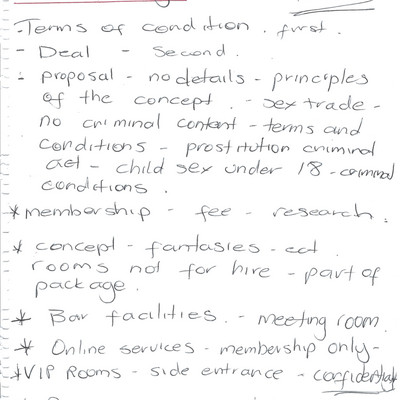 - Terms of condition . first .
- Deal - Second .
- proposal - no details - principles
of the concept . - sex trade -
no criminal content - terms and
conditions - prostitution criminal
act - child sex under 18 - criminal
conditions .
* membership - fee - research .
* concept - fantasies - ect .
rooms not for hire - part of
package .
* Bar facilities . - meeting room
* Online services - membership only -
* VIP Rooms - side entrance - confidential